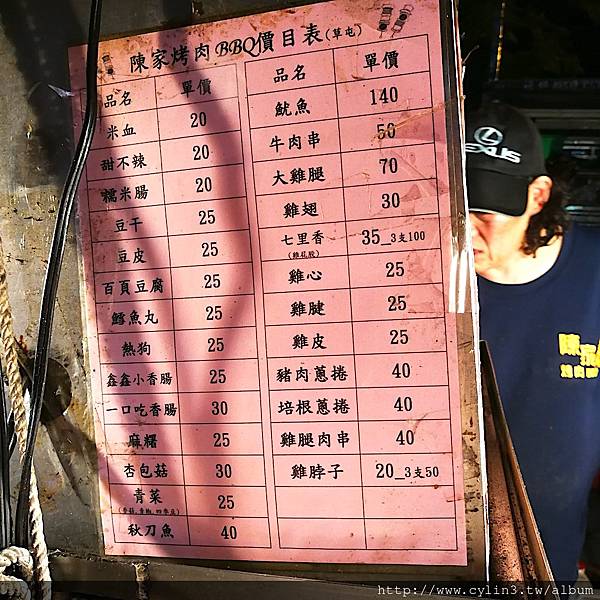 陳家烤肉BBQ價目表(草屯)
品名 單價
米血 20
甜不辣 20
糯米腸 20
豆干 25
豆皮 25
百頁豆腐 25
鱈魚丸 25
熱狗 25
鑫鑫小香腸 25
一口吃香腸 30
麻糬 25
杏包菇 30
青菜 25
(香菇,青椒,四季豆)
秋刀魚 40
品名 單價
魷魚 140
牛肉串 50
大雞腿 70
雞翅 30
七里香 35_3支100
(雞花胶)
雞心 25
雞腱 25
雞皮 25
豬肉蔥捲 40
培根蔥捲 40
雞腿肉串 40
雞脖子 20_3支50
LEXUS
陳家
烤肉
http://www.cylin3.tw/album